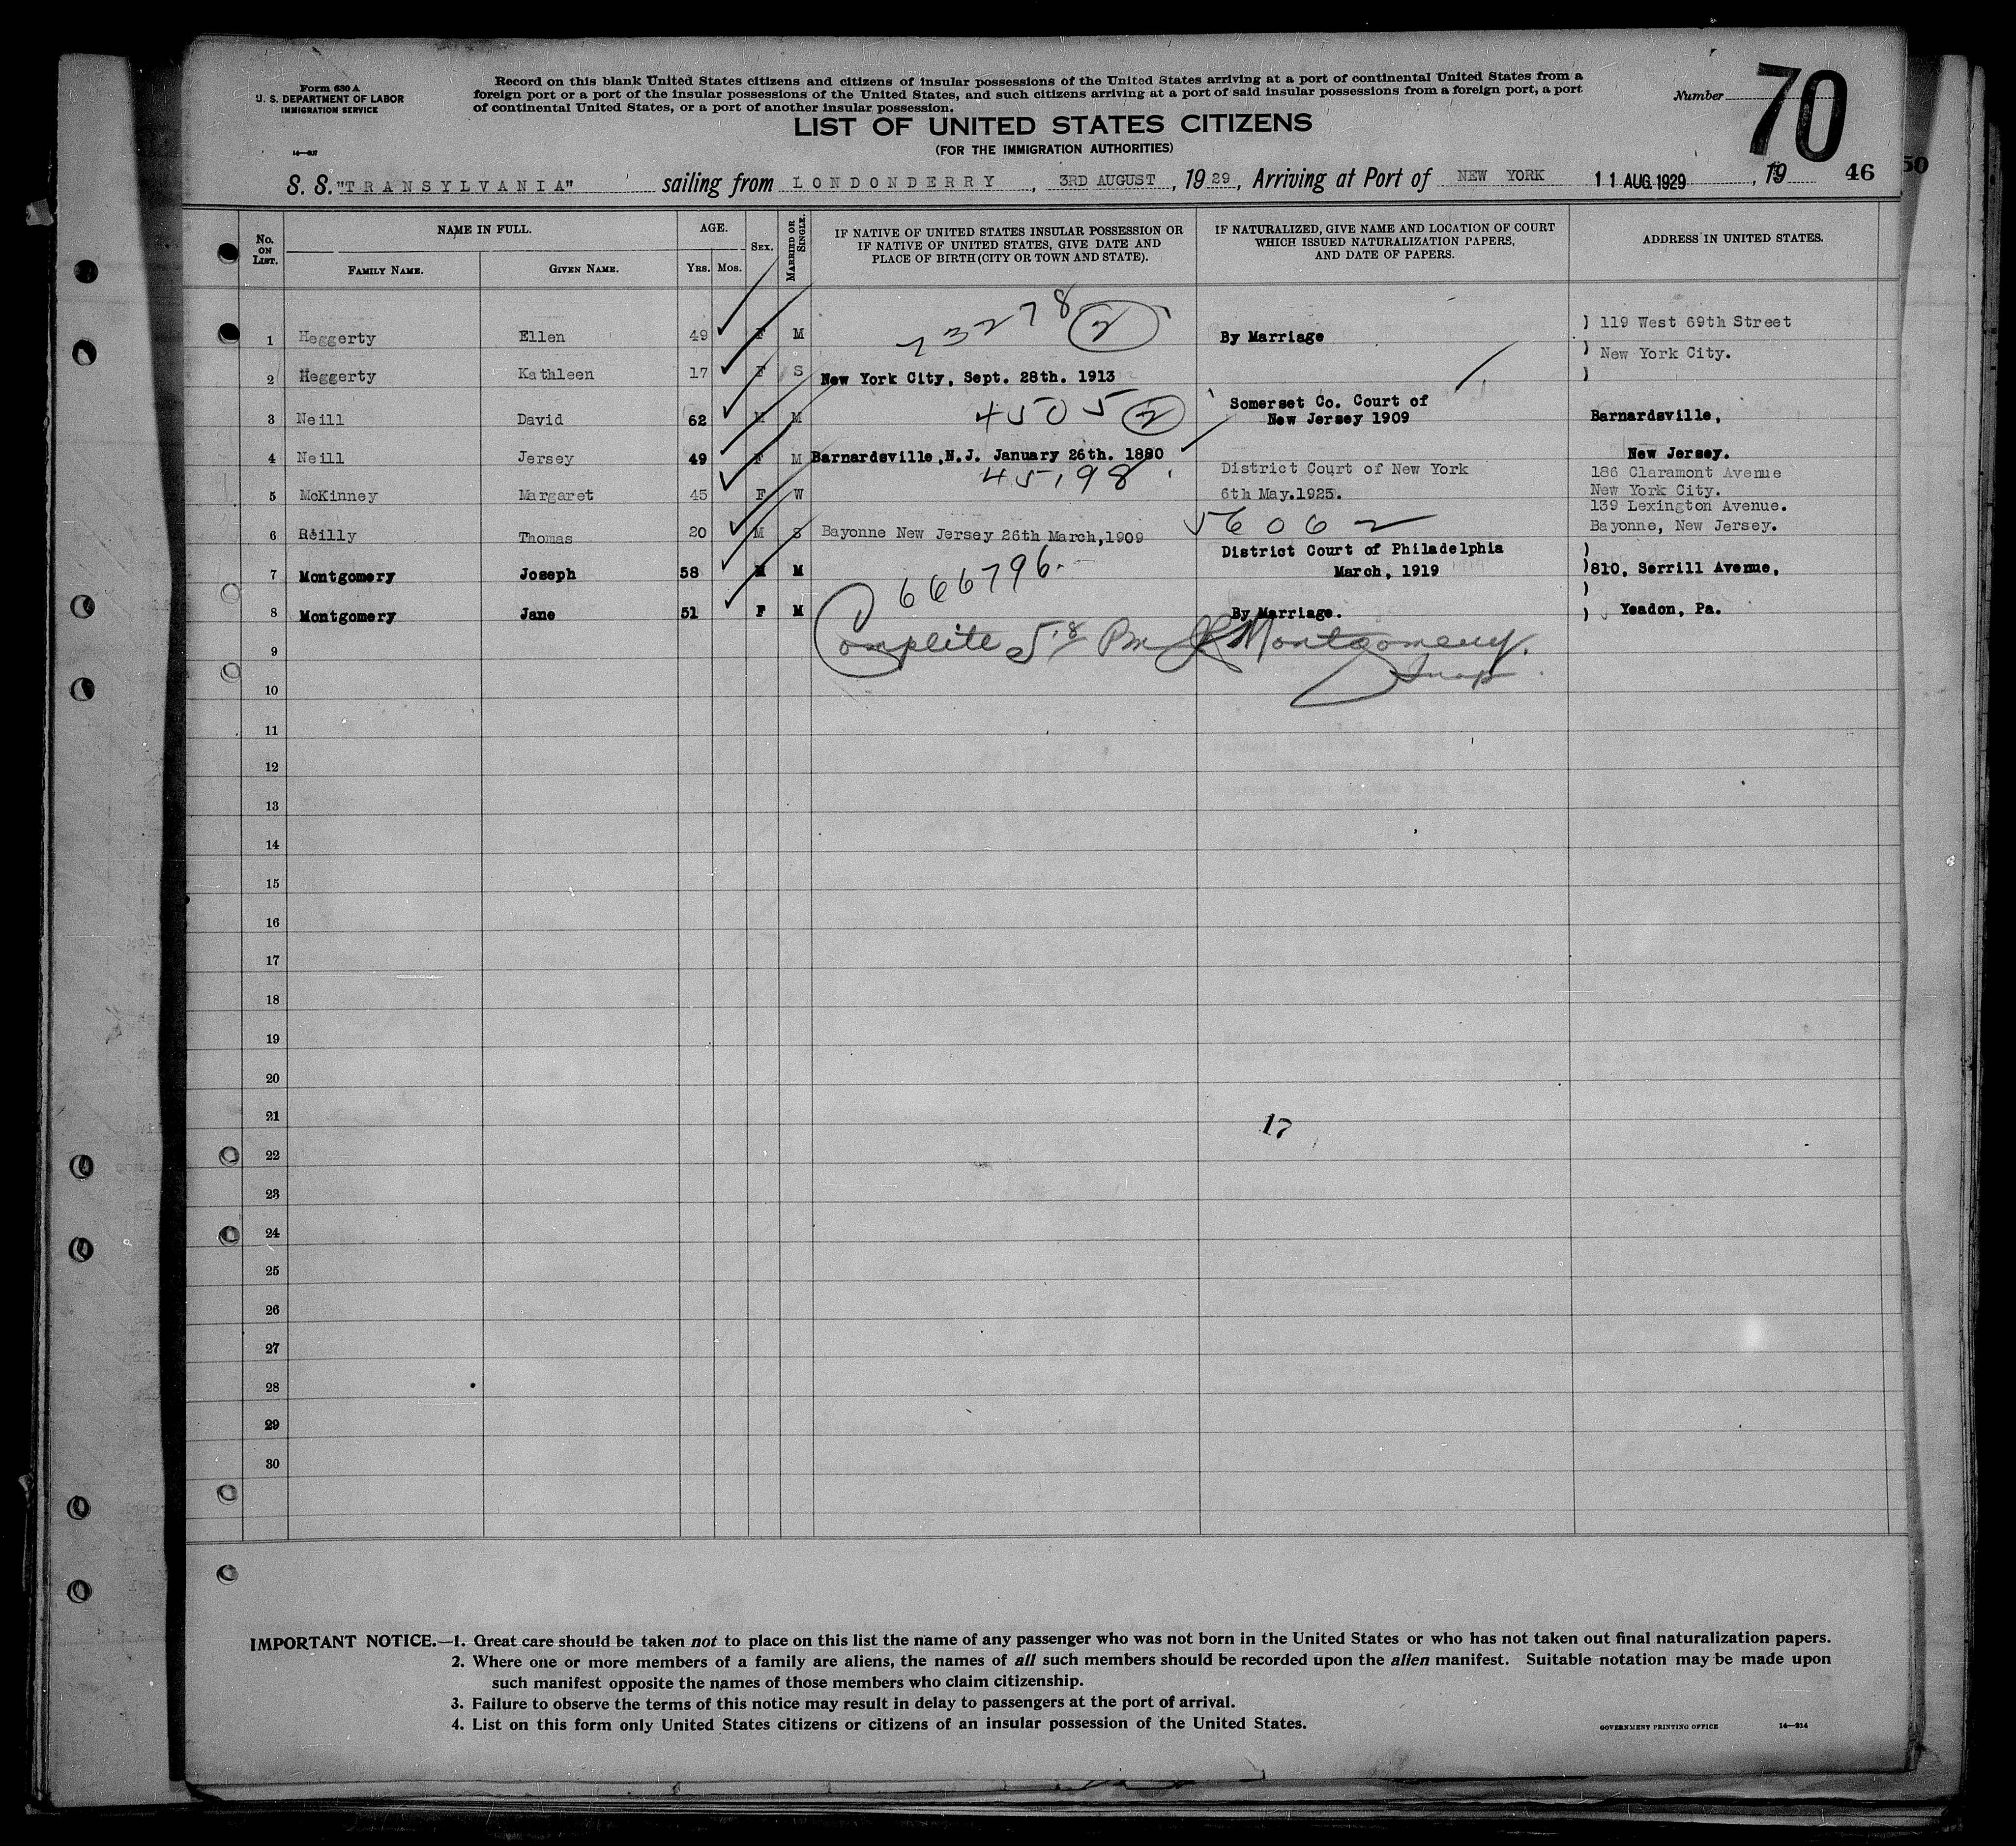 Form 630 A
U. S. DEPARTMENT OF LABOR
IMMIGRATION SERVICE
Record on this blank United States citizens and citizens of insular possessions of the United States arriving at a port of continental United States from a
foreign port or a port of the insular possessions of the United States, and such citizens arriving at a port of said insular possessions from a foreign port, a port
of continental United States, or a port of another insular possession.
Number 70
LIST OF UNITED STATES CITIZENS
(FOR THE IMMIGRATION AUTHORITIES)
S. S. "TRANSYLVANIA" sailing from LONDONDERRY, 3RD AUGUST, 1929, Arriving at Port of NEW YORK 11 AUG. 1929, 19 46 50
No. ON LIST. NAME IN FULL. AGE. SEX. MARRIED OR SINGLE. IF NATIVE OF UNITED STATES INSULAR POSSESSION OR IF NATIVE OF UNITED STATES, GIVE DATE AND PLACE OF BIRTH (CITY OR TOWN AND STATE). IF NATURALIZED, GIVE NAME AND LOCATION OF COURT WHICH ISSUED NATURALIZATION PAPERS, AND DATE OF PAPERS. ADDRESS IN UNITED STATES.
FAMILY NAME. GIVEN NAME. YRS. MOS.
73278 (2)
1 Heggerty Ellen 49 F M By Marriage ) 119 West 69th Street
) New York City.
2 Heggerty Kathleen 17 F S New York City, Sept. 28th. 1913 )
4505 (2)
3 Neill David 62 M M Somerset Co. Court of New Jersey 1909 Barnardsville,
4 Neill Jersey 49 F M Barnardsville, N.J. January 26th. 1880 New Jersey.
45198
5 McKinney Margaret 45 F W District Court of New York 6th May.1925. 186 Claramont Avenue New York City.
6 Reilly Thomas 20 M S Bayonne New Jersey 26th March, 1909 56062 139 Lexington Avenue. Bayonne, New Jersey.
7 Montgomery Joseph 58 M M 666796. District Court of Philadelphia March, 1919 ) 810, Serrill Avenue,
8 Montgomery Jane 51 F M By Marriage. ) Yeadon, Pa.
9 Complete 5.18 Pm Montgomery.
Insp
10
11
12
13
14
15
16
17
18
19
20
21
17
22
23
24
25
26
27
28
29
30
IMPORTANT NOTICE.—1. Great care should be taken not to place on this list the name of any passenger who was not born in the United States or who has not taken out final naturalization papers.
2. Where one or more members of a family are aliens, the names of all such members should be recorded upon the alien manifest. Suitable notation may be made upon
such manifest opposite the names of those members who claim citizenship.
3. Failure to observe the terms of this notice may result in delay to passengers at the port of arrival.
4. List on this form only United States citizens or citizens of an insular possession of the United States.
GOVERNMENT PRINTING OFFICE 14—214